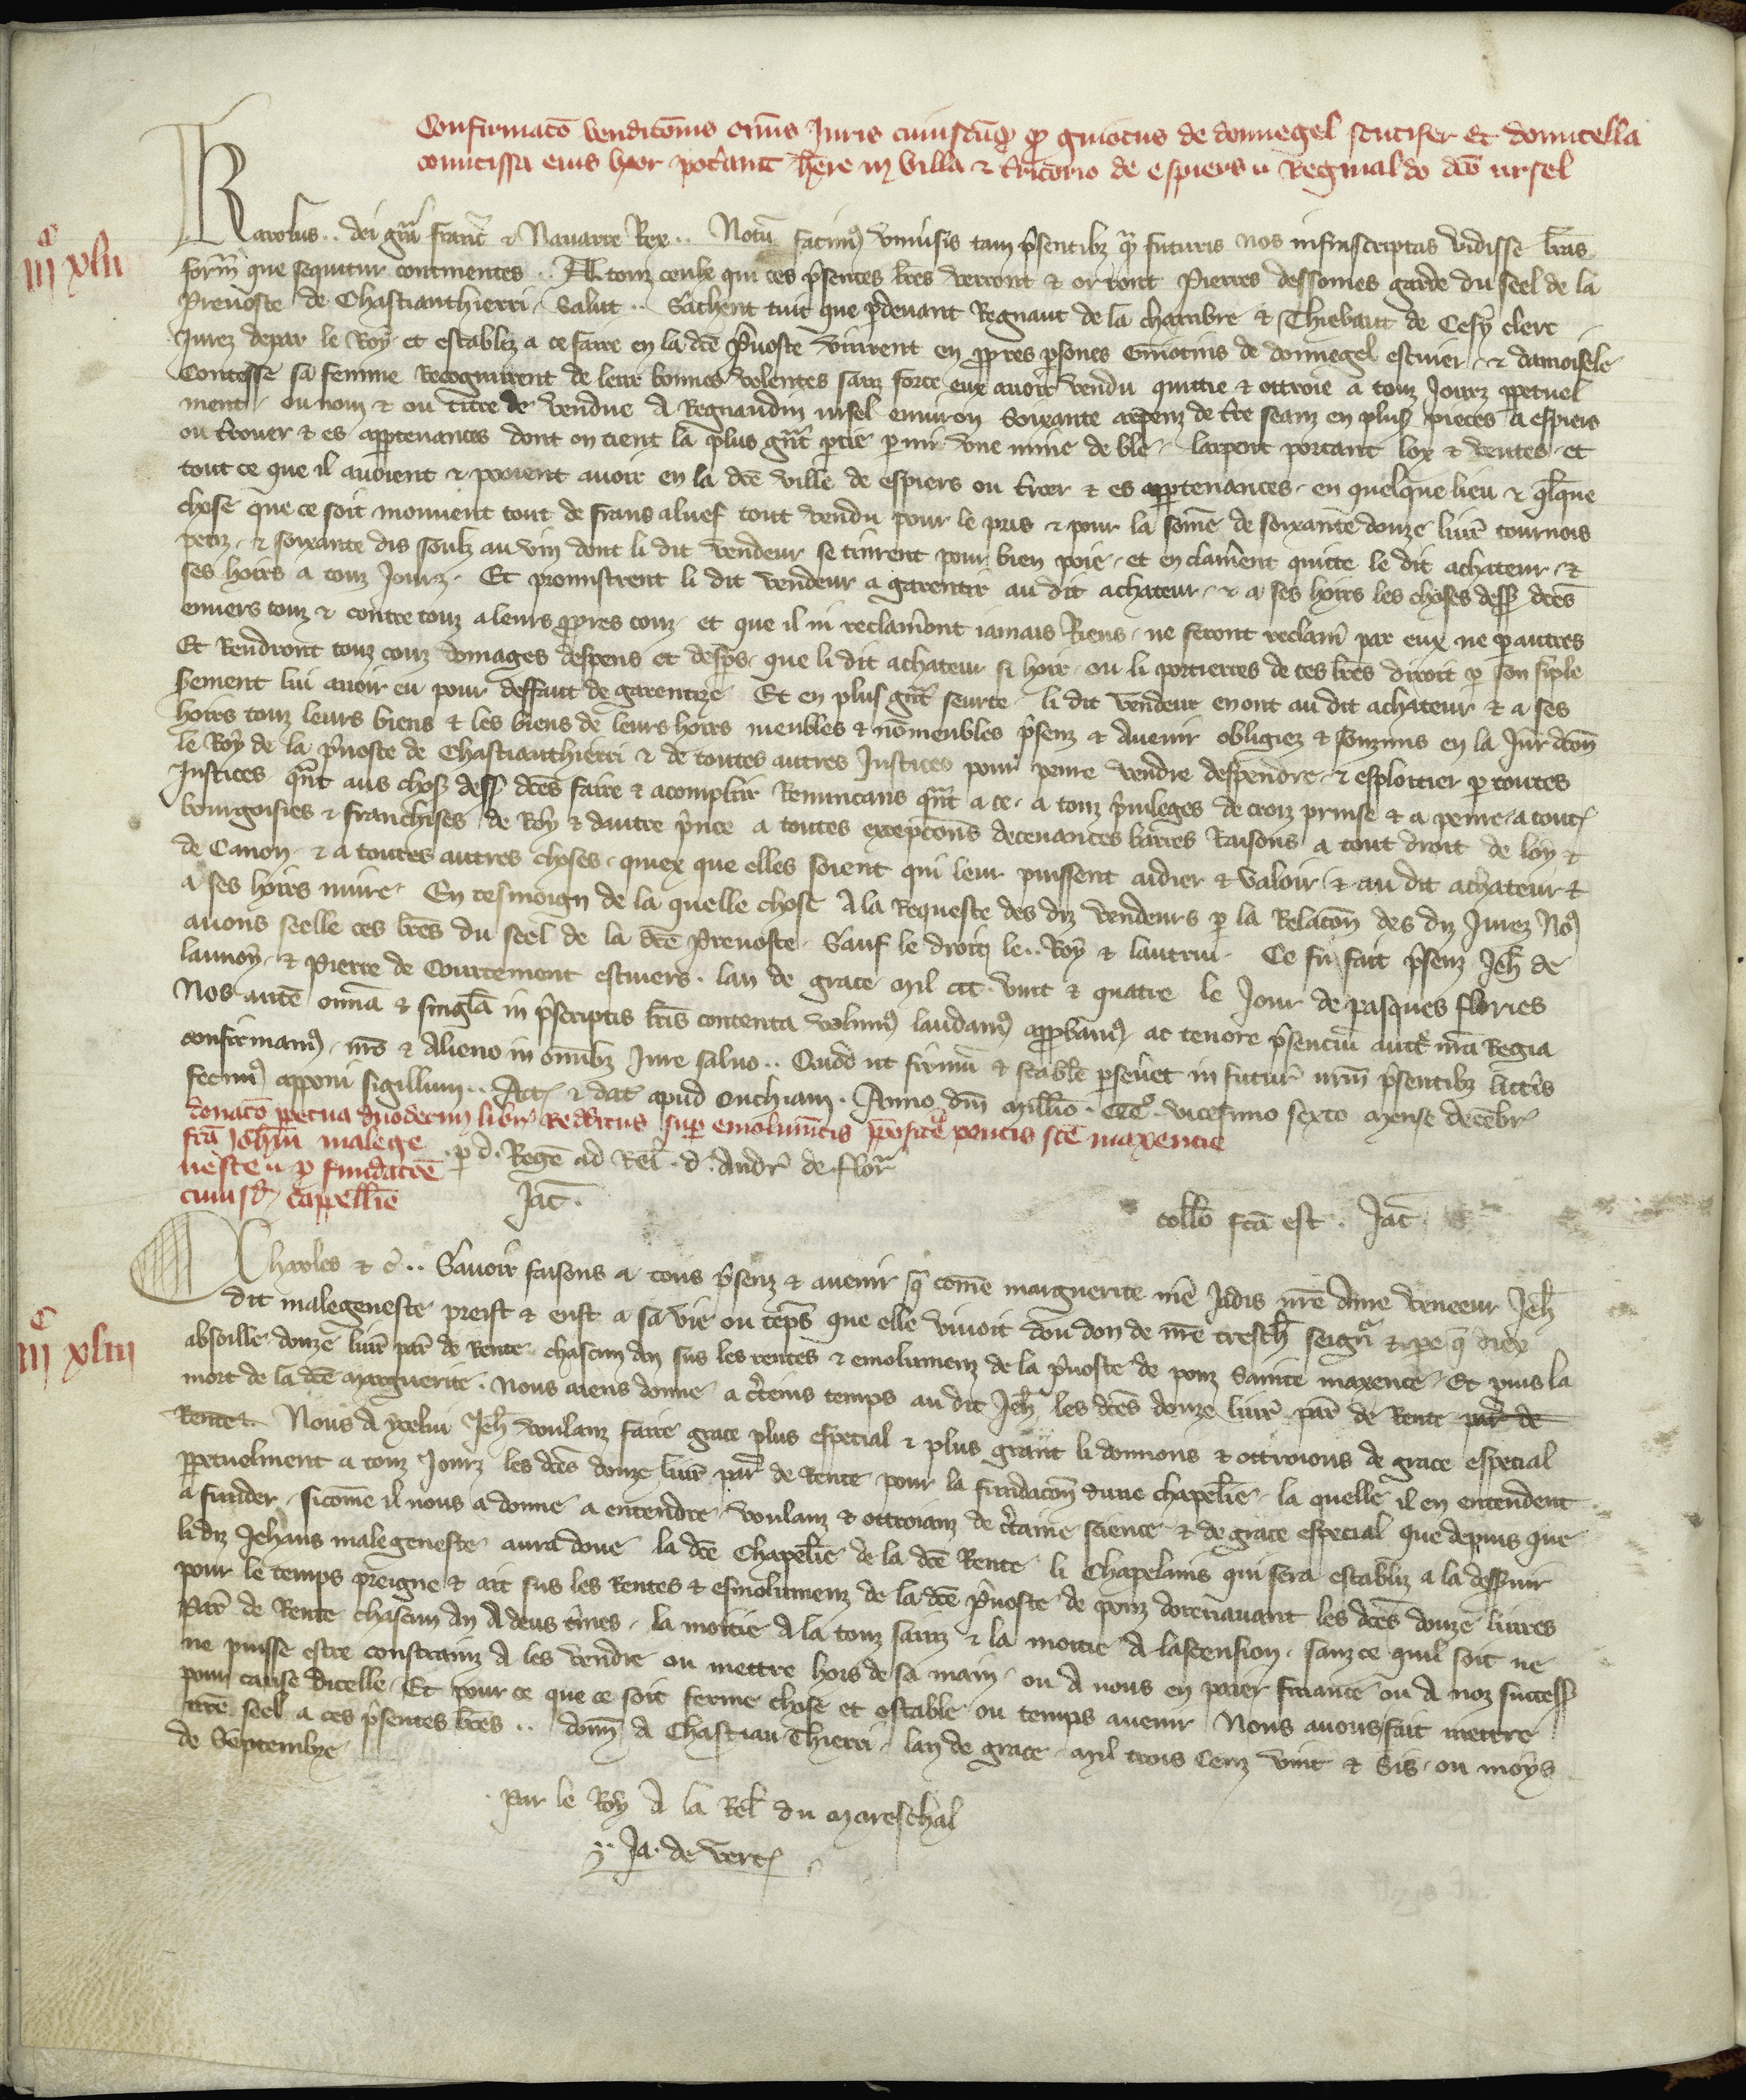 Confirmatō venditōnis om̄is Juris cuiuscūq; qd guiotus de donnegel scutifer Et domicella
comitissa eius uxor poterant hēre in villa & t'ritorio de espiers a Reginaldo dcō ursel
iijc xlii
Karolus .. dei grā franc̄ & Nauarre Rex .. Notū facim9 vniu'sis tam p'sentibz q̄ futuris nos infrascriptas vidisse l'ras
formā que sequitur continentes .. A touz ceulx qui ces p'sentes l'res verront & orront Pierres dessomes garde du seel de la
Preuoste de Chastianthierri Salut .. Sachent tuit que p'deuant Regnaut de la chambre & Thiebaut de Cesy clerc
Jurez depar le Roy et establiz a ce faire en la dcē p'uoste vinrent en propres p'sones Guiotins de donnegel escuier & damoisele
Contesse sa femme Recognurent de leur bonnes volentes sanz force eux auoir vendu quittie & ottroie a touz Jourz p'petuel
ment ou nom & ou titre de vendue A Regnaudin ursel enuiron Soixante arpenz de t're seanz en plus' pieces a espiers
ou t'rouer & es appartenances dont on tient la plus grāt p'tie p'mi vne mine de ble larpent portant lox & ventes et
tout ce que il auoient & pooient auoir en la dcē ville de espiers ou t'roer & es app'tenances en quelque lieu & q'lque
chose que ce soit mouuent tout de frans aluef tout vendu pour le pris & pour la some de soixante douze liur' tournois
petiz & soixante dis soulz au vin dont li dit vendeur se tinrent pour bien poie et en clamerent quitte le dit achateur &
ses hoirs a touz Jourz . Et promistrent li dit vendeur a garentir au dit achateur & a ses hoirs les choses dess' dcēs
enuers touz & contre touz a leurs propres couz et que il ni reclameront iamais Riens ne feront reclam' par eux ne p' autres
Et Rendront touz couz domages despens et desp's que li dit achateur si hoir ou li portierres de ces l'res diroit p' son simple
serement lui auoir eu pour deffaut de garentize Et en plus grāt seurte li dit vendeur en ont au dit achateur & a ses
hoirs touz leurs biens & les biens de leurs hoirs meubles & nō meubles p'senz & Auenir obligiez & souzmis en la Jur'dcōn
le Roy de la p'uoste de Chastianthierri & de toutes autres Justices pour penre vendre despendre & esploitier p' toutes
Justices q̄nt aus chos' dess' dcēs faire & acomplir Renuncans q̄nt a ce a touz p'uileges de croiz prinse & a penre a toutes
bourgoisies & franchises de Roy & dautre p'nce a toutes excepcōns deceuances barres Raisons a tout droit de loy &
de Canon & a toutes autres choses quiex que elles soient qui leur puissent aidier & valoir & au dit achateur &
a ses hoirs nuire En tesmoign de la quelle chose A la Requeste des diz vendeurs p' la Relacōn des diz Jurez No9
auons seelle ces l'res du seel de la dcē Preuoste Sauf le droit le .. Roy & lautrui Ce fu fait p'senz Jeh' de
launoy & Pierre de Courtemont escuiers . lan de grace mil ccc . vint & quatre le Jour de pasques flories
Nos autē omīa & singl'a in p'scriptis l'ris contenta volum9 laudam9 approbam9 ac tenore p'sencium auct' nr̄a Regia
confirmam9 nr̄o & Alieno in omībz Jure saluo .. Quod ut firmū & stabile perseu'et in futur' nr̄m p'sentibz litt'is
fecim9 apponi sigillum .. Act' & dat' apud Onchiam . Anno dn̄i mill'io . CCCo . vicesimo sexto mense decēbr'
donacō p'petua duodecim libr' Redditus sup' emolumētis p'positur' pontis scē maxencie
fcā Joh'ni malege
neste u p' fundacōe
cuiusd' Capell'ie
. p' d . Regē ad Rel' . d . Andr' de flor'
Jac' .
coll'o fcā est . Jac'
iijc xliii
Charles & c̄ .. Sauoir faisons a tous p'senz & auenir q' come marguerite mē Jadis nr̄e Ame veneeur Jeh'
dit malegeneste preist & eust a sa vie ou tēps que elle viuoit dou don de nr̄e tresch' seign' & pe' q' diex
absoille douze liur' par' de Rente chascun An sus les rentes & emolumenz de la p'uoste de ponz Sainte maxence Et puis la
mort de la dcē Marguerite . Nous aiens donne a c'teins temps au dit Jeh' les dcēs douze liur' par' de Rente par' de
Rente . Nous A ycelui Jeh' voulanz faire grace plus especial & plus grant li donnons & ottroions de grace especial
p'petuelment a touz Jourz les dcēs douze liur' par' de Rente pour la fundacōn dune chapel'ie la quelle il en entendent
a funder sicome il nous a donne a entendre voulanz & ottroianz de c'taine science & de grace especial que depuis que
li diz Jehans malegeneste aura doue la dcē Chapel'ie de la dcē Rente li Chapelains qui sera establiz a la desseruir
pour le temps preigne & ait sus les Rentes & esmolumenz de la dcē p'uoste de ponz dorenauant les dcēs douze liures
Par' de Rente chascun An A deus t'mes . la moitie A la touz sainz & la moitie A lascension . sanz ce quil soit ne
ne puisse estre constrainz A les vendre ou mettre hors de sa main ou A nous en paier finance ou A noz success'
pour cause dicelle Et pour ce que ce soit ferme chose et estable ou temps auenir Nous auons fait mettre
nr̄e seel a ces p'sentes l'res .. donn' A Chastiau Thierri lan de grace mil trois Cenz vint & Sis ou moys
de Septembre
. Par le Roy A la Rel' du Mareschal
Ja . de vert'